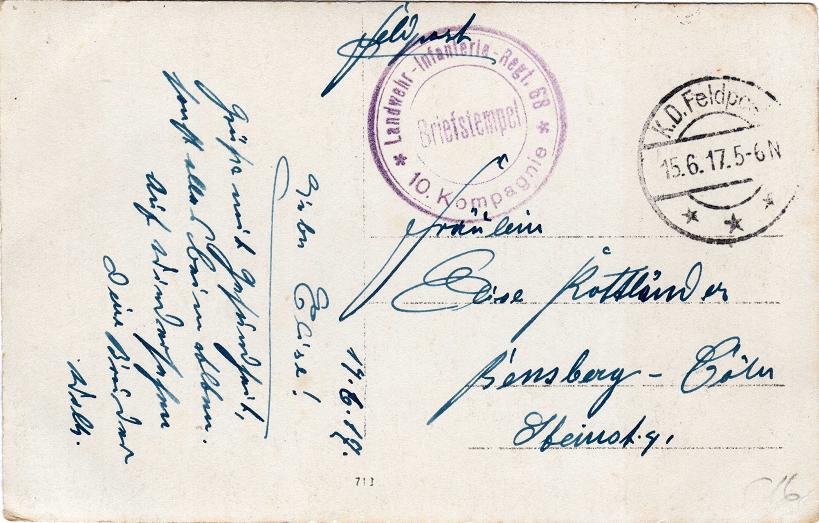 Feldpost
Landwehr-Infanterie-Regt. 68
Briefstempel
* 10. Kompagnie *
K.D. Feldpost
15.6.17.5-6N
Fräulein
Elise Kottländer
Bensberg - Cöln
Steinstr.
14.6.17.
Liebe Elise!
Grüße mit Gesundheit,
sonst alles beim alten.
Auf Wiedersehen
Dein Bruder
Willy.
713